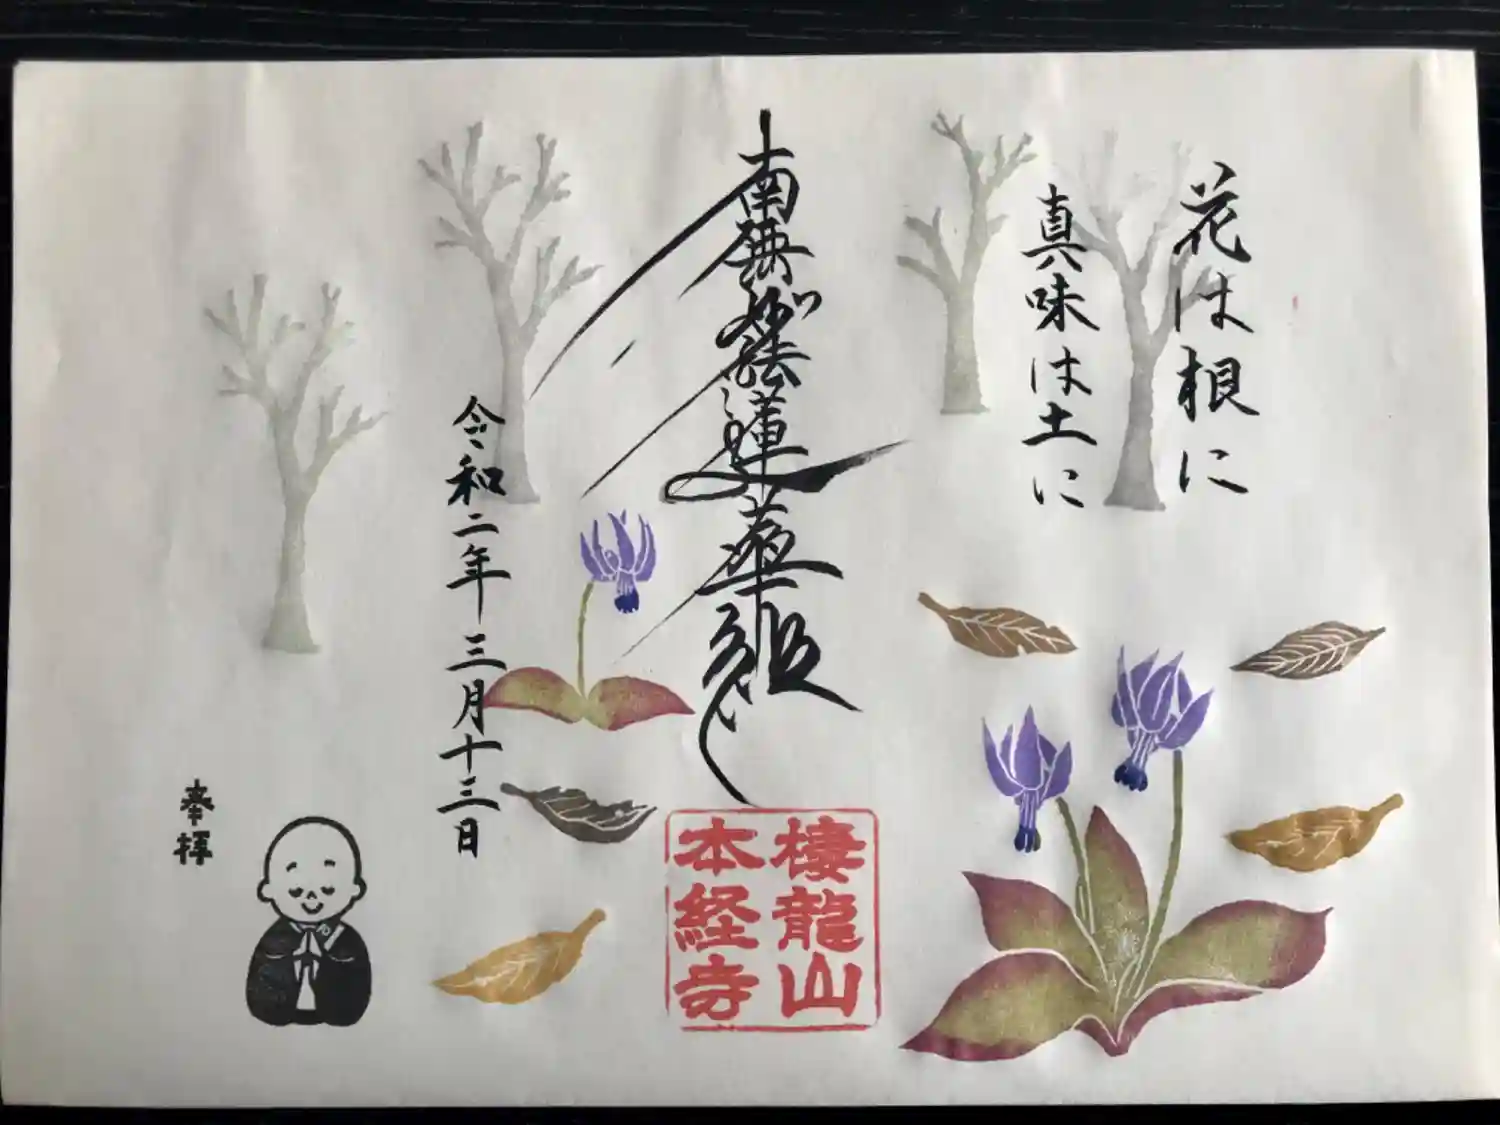 花は根に
真味は土に
南無妙法蓮華経
棲龍山
本経寺
令和二年三月十三日
奉拝